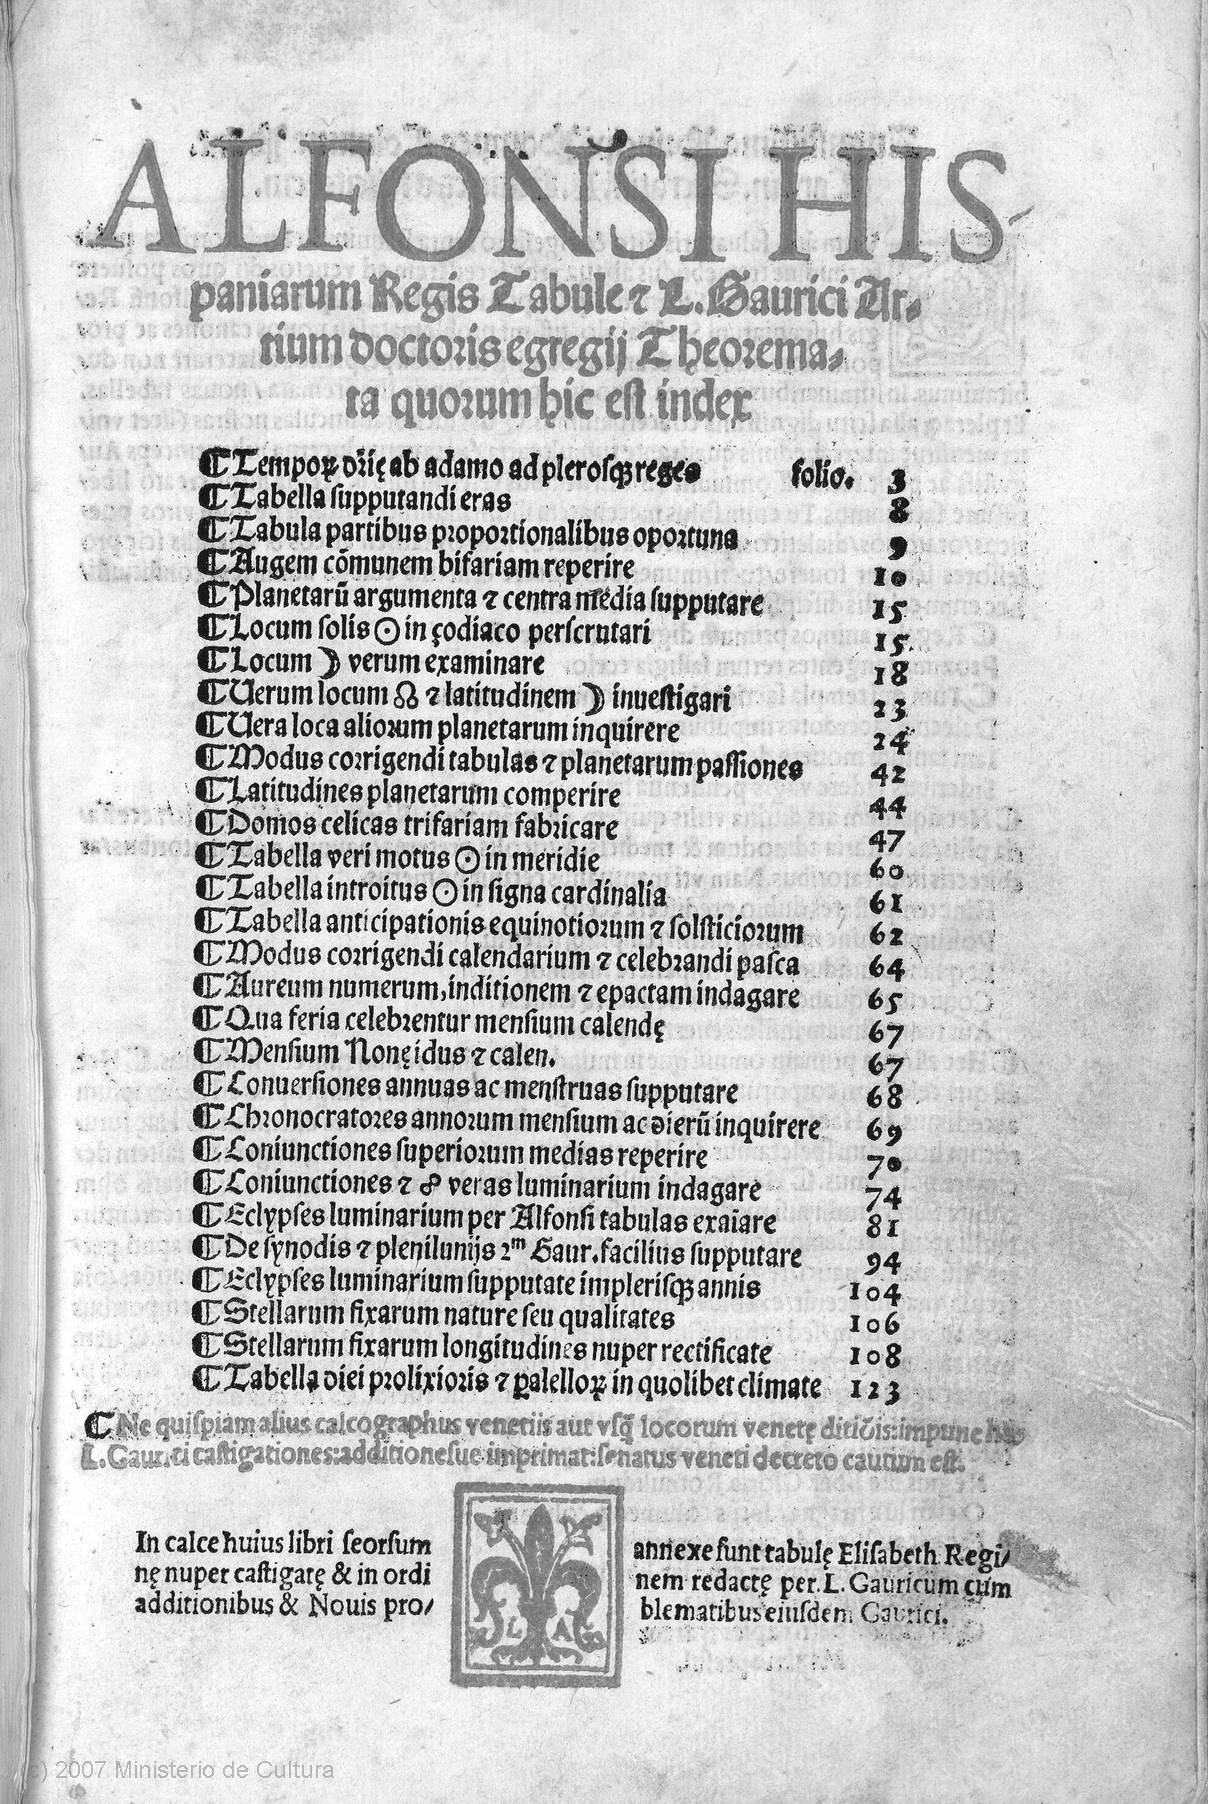 ALFONSI HIS
paniarum Regis Tabule ⁊ L. Gaurici Ar⸗
tium doctoris egregij Theorema⸗
ta quorum hic est index
¶ Tempoꝝ dr̄ię ab adamo ad plerosqꝫ reges folio. 3
¶ Tabella supputandi eras 8
¶ Tabula partibus proportionalibus oportuna 9
¶ Augem cōmunem bifariam reperire 10
¶ Planetarū argumenta ⁊ centra media supputare 15
¶ Locum solis ☉ in çodiaco perscrutari 15
¶ Locum ☽ verum examinare 18
¶ Uerum locum ☊ ⁊ latitudinem ☽ inuestigari 23
¶ Uera loca aliorum planetarum inquirere 24
¶ Modus corrigendi tabulas ⁊ planetarum passiones 42
¶ Latitudines planetarum comperire 44
¶ Domos celicas trifariam fabricare 47
¶ Tabella veri motus ☉ in meridie 60
¶ Tabella introitus ☉ in signa cardinalia 61
¶ Tabella anticipationis equinotiorum ⁊ solsticiorum 62
¶ Modus corrigendi calendarium ⁊ celebrandi pasca 64
¶ Aureum numerum, inditionem ⁊ epactam indagare 65
¶ Qua feria celebrentur mensium calendę 67
¶ Mensium Nonę idus ⁊ calen. 67
¶ Conuersiones annuas ac menstruas supputare 68
¶ Chronocratores annorum mensium ac dierū inquirere 69
¶ Coniunctiones superiorum medias reperire 70
¶ Coniunctiones ⁊ ☍ veras luminarium indagare 74
¶ Eclypses luminarium per Alfonsi tabulas exaīare 81
¶ De synodis ⁊ plenilunijs 2m Gaur. facilius supputare 94
¶ Eclypses luminarium supputate implerisqꝫ annis 104
¶ Stellarum fixarum nature seu qualitates 106
¶ Stellarum fixarum longitudines nuper rectificate 108
¶ Tabella diei prolixioris ⁊ ꝑalelloꝝ in quolibet climate 123
¶ Ne quispiam alius calcographus venetiis aut vsq̄ locorum venetę ditiōis: impune has
L. Gaurici castigationes: additionesue imprimat: senatus veneti decreto cautum est.
In calce huius libri seorsum
nę nuper castigatę & in ordi
additionibus & Nouis pro/
L A
annexe sunt tabulę Elisabeth Regi/
nem redactę per. L. Gauricum cum
blematibus eiusdem Gaurici.
(c) 2007 Ministerio de Cultura